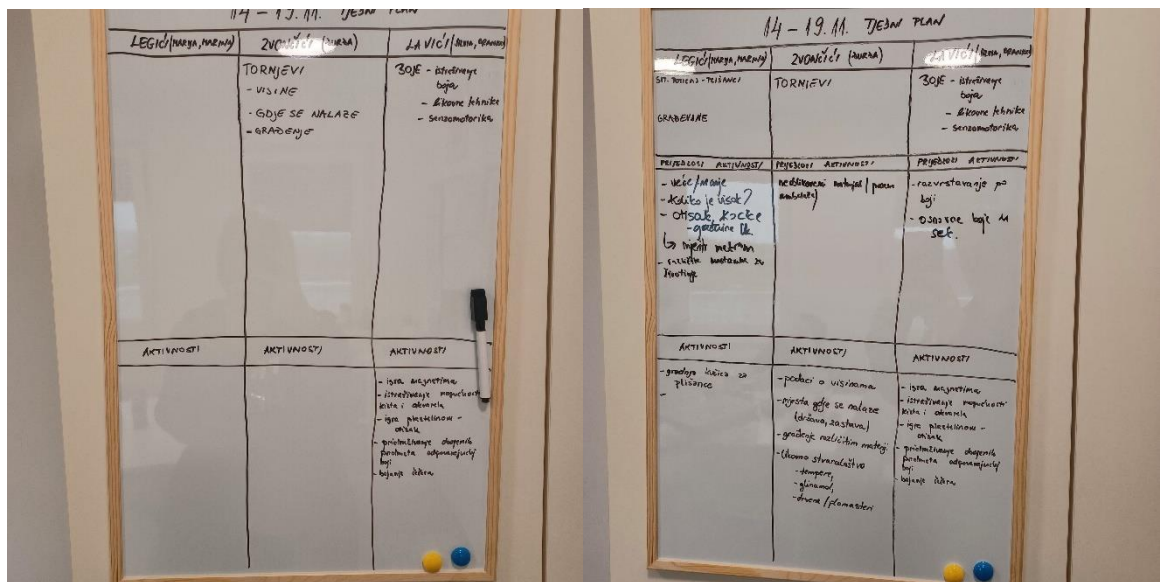 14 - 19.11. TJEDNI PLAN
LEGIĆI (MARIJA, MARINA)
ZVONČIĆI (ĐURĐA)
LAVIĆI
TORNJEVI
- VISINE
- GDJE SE NALAZE
- GRAĐENJE
BOJE - istraživanje
boja
- likovne tehnike
- senzomotorika
AKTIVNOSTI
AKTIVNOSTI
AKTIVNOSTI
- igra magnetima
- istraživanje mogućnosti
kista i akvarela
- igra plastelinom -
otisak
- pridruživanje obojenih
predmeta odgovarajućoj
boji
- bojanje
14 - 19.11. TJEDNI PLAN
LEGIĆI (MARIJA, MARINA)
ZVONČIĆI (ĐURĐA)
LAVIĆI
GRAĐEVINE
TORNJEVI
BOJE - istraživanje
boja
- likovne tehnike
- senzomotorika
PRIJEDLOZI AKTIVNOSTI
PRIJEDLOZI AKTIVNOSTI
PRIJEDLOZI AKTIVNOSTI
- veće/manje
- Koliko je visok?
- otisak, kocke
- građevine
↳ mjeriti metrom
- različite nastambe za
životinje
neoblikovani materijal
- razvrstavanje po
boji
- osnovne boje u
sek.
AKTIVNOSTI
AKTIVNOSTI
AKTIVNOSTI
- gradnja kućica za
plišance
-
- podaci o visinama
- mjesta gdje se nalaze
(država, zastava)
- građenje različitim materij.
- likovno stvaralaštvo
- tempere,
- glinamol,
- drvene / flomasteri
- igra magnetima
- istraživanje mogućnosti
kista i akvarela
- igra plastelinom -
otisak
- pridruživanje obojenih
predmeta odgovarajućoj
boji
- bojanje